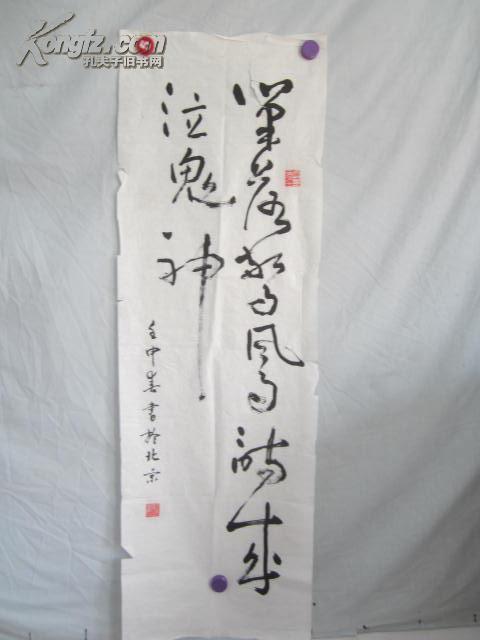 Kongfz.com
孔夫子旧书网
筆落驚風雨詩成
泣鬼神
壬申春書於北京